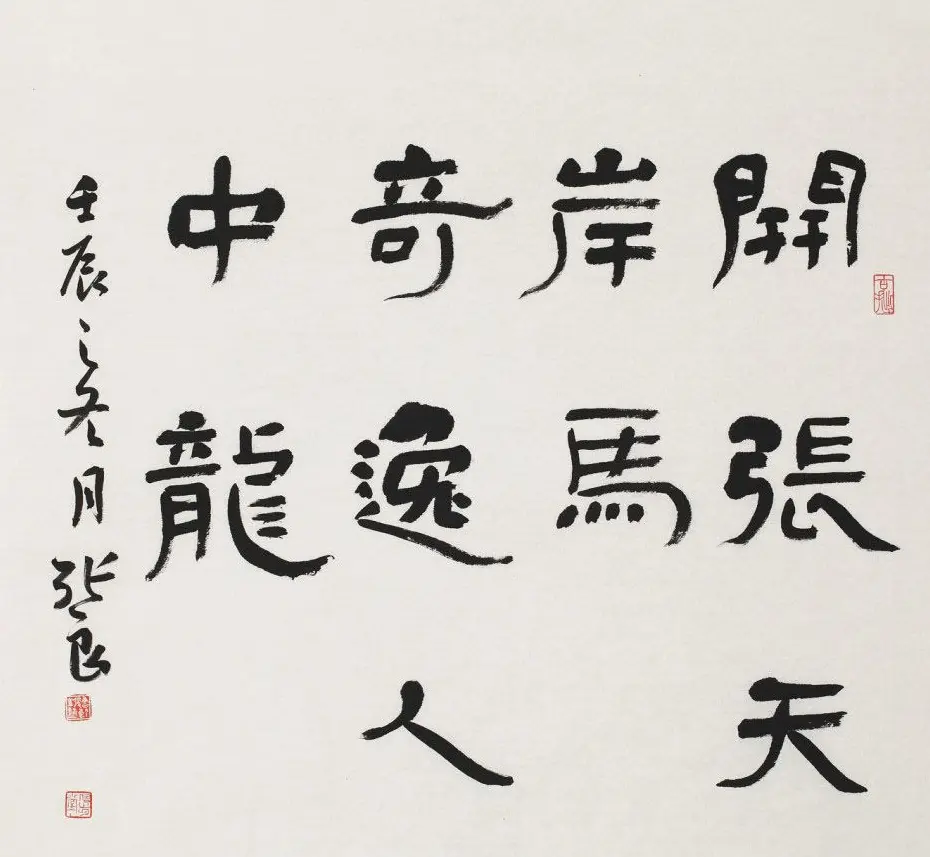 開張天
岸馬
奇逸人
中龍
壬辰之冬月張良